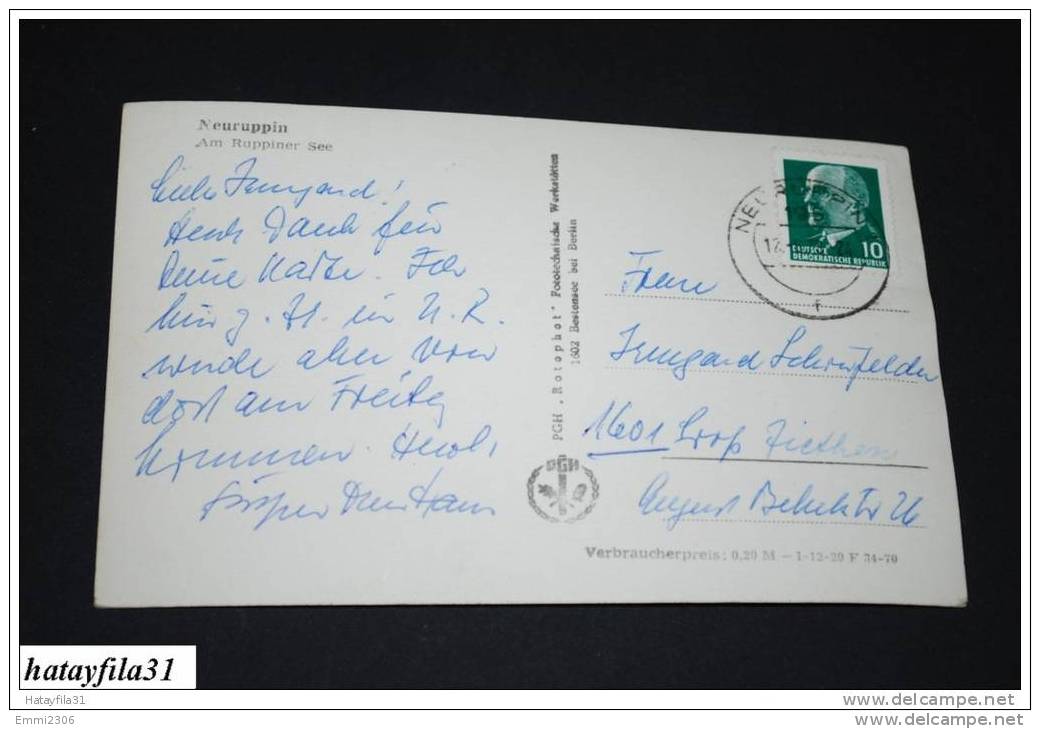 Neuruppin
Am Ruppiner See
Liebe Irmgard!
Herzl. Dank für
Deine Karte.
bin z. Zt. in N. R.
werde aber von
dort am Freitag
kommen. Herzl.
Grüße Dein Hans
PGH „Rotophot" Fototechnische Werkstätten
1602 Bestensee bei Berlin
PGH
NEURUPPIN
DEUTSCHE
DEMOKRATISCHE REPUBLIK
10
Frau
Irmgard Schönfelder
1601 Groß Ziethen
August Bebelstr 26
Verbraucherpreis: 0,20 M – 1-12-20 F 34-70
hatayfila31
Hatayfila31
Emmi2306
www.delcampe.net
www.delcampe.net